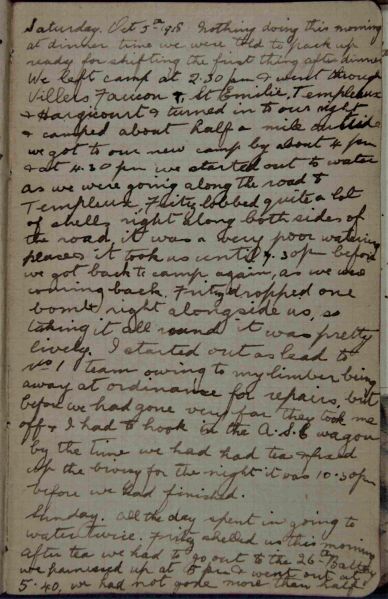 Saturday. Oct 5th 1918 Nothing doing this morning
at dinner time we were told to pack up
ready for shifting the first thing after dinner
We left camp at 2.30 pm & went through
Villers Faucon & St Emilie, Templeux
& Hargicourt & turned in to our right
& camped about half a mile outside
we got to our new camp by about 4 pm
& at 4.30 pm we started out to water
as we were going along the road to
Templeux, Fritz lobbed quite a lot
of shells right along both sides of
the road, it was a very poor watering
places it took us until 7.30 pm before
we got back to camp again, as we were
coming back. Fritz dropped one
bomb right alongside us, so
taking it all round it was pretty
lively. I started out as lead to
No 1 team owing to my limber being
away at ordinance for repairs, but
before we had gone very far they took me
off & I had to hook in the A.S.C wagon
by the time we had had tea & fixed
up the bivvy for the night it was 10.30 pm
before we had finished.
Sunday. all the day spent in going to
water twice. Fritz shelled us this morning
after tea we had to go out to the 26th Battery
we harnessed up at 5 pm & went out at
5.40, we had not gone more than half